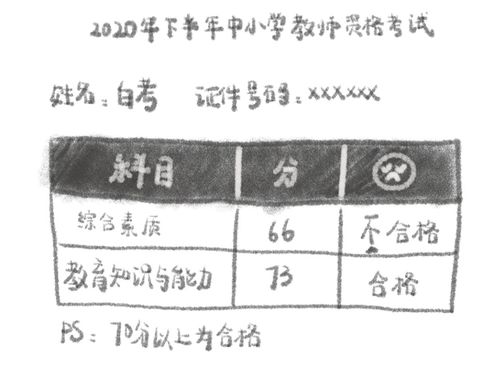 2020年下半年中小学教师资格考试
姓名：白考 证件号码：xxxxxx
科目 分
综合素质 66 不合格
教育知识与能力 73 合格
PS：70分以上为合格